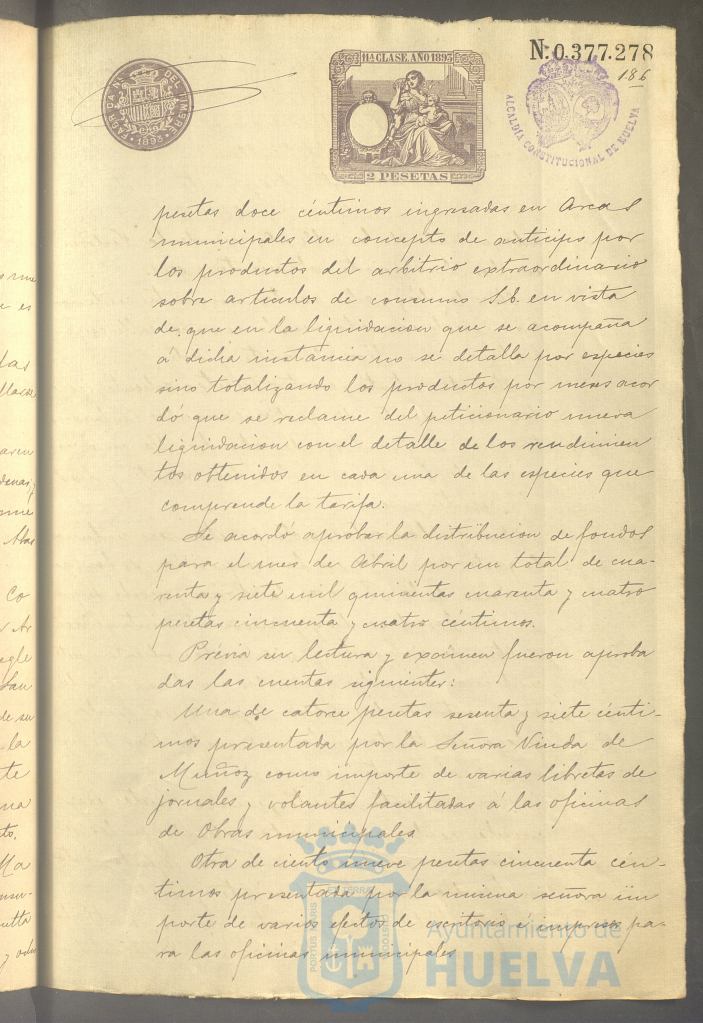 11ª CLASE. AÑO 1893
2 PESETAS
1893
Nº 0.377.278
186
ALCALDÍA CONSTITUCIONAL DE HUELVA
pesetas doce céntimos ingresadas en Arcas
municipales en concepto de anticipo por
los productos del arbitrio extraordinario
sobre articulos de consumo S.E. en vista
de que en la liquidacion que se acompaña
a dicha instancia no se detalla por especies
sino totalizando los productos por meses acor
dó que se reclame del peticionario nueva
liquidacion con el detalle de los rendimien
tos obtenidos en cada una de las especies que
comprende la tarifa.
Se acordó aprobar la distribucion de fondos
para el mes de Abril por un total de cua-
renta y siete mil quinientas cuarenta y cuatro
pesetas cincuenta y cuatro céntimos.
Previa su lectura y exámen fueron aproba
das las cuentas siguientes:
Una de catorce pesetas sesenta y siete cénti-
mos presentada por la Señora Viuda de
Muñoz como importe de varias libretas de
jornales y volantes facilitadas á las oficinas
de Obras municipales
Otra de ciento nueve pesetas cincuenta cén-
timos presentada por la misma señora im
porte de varios efectos de escritorio é impresos pa-
ra las oficinas municipales
PORTUS MARIS ET TERRÆ CUSTODIA
Ayuntamiento de
HUELVA